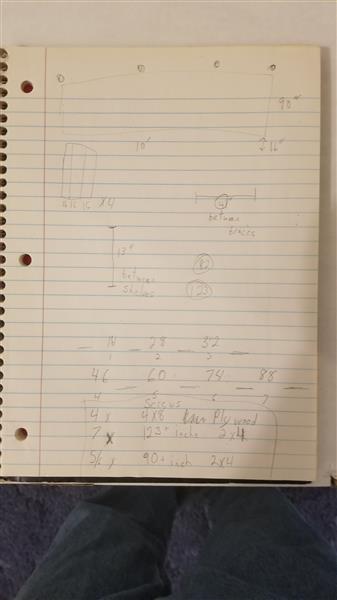 90"
10'
16"
16 16 16 x4
4'
between
braces
13"
between
shelves
82
123
14 28 32
1 2 3
46 60 74 88
4 5 6 7
Screws
4 x 4x8 Plywood
7 x 123" inch 2x4
5/6 x 90+ inch 2x4